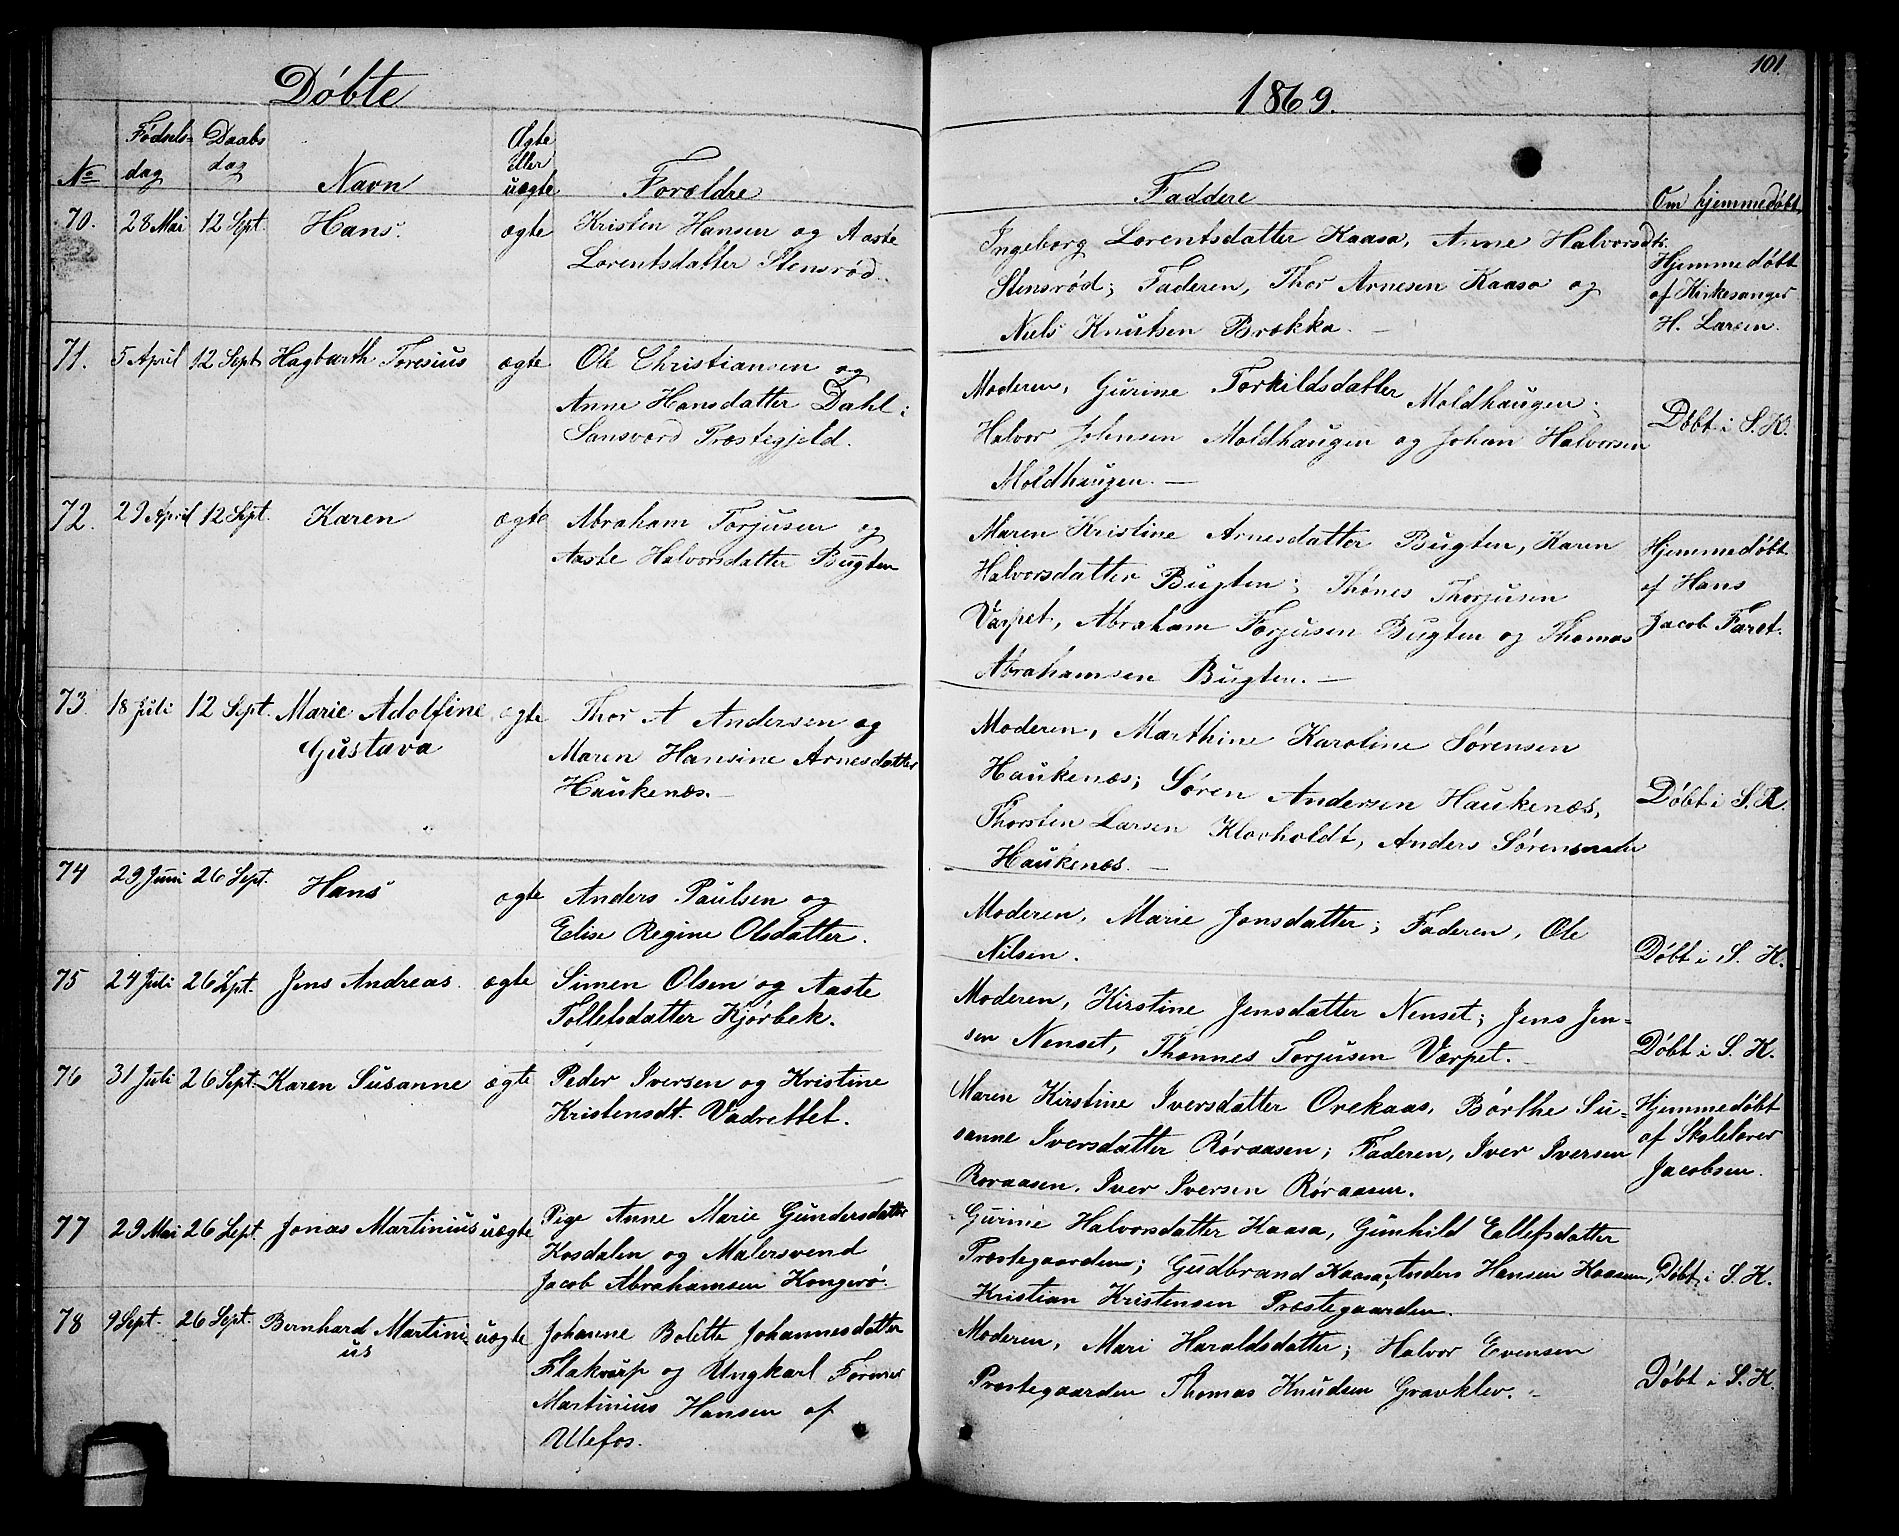 Døbte
1869.
101.
No
Fødselsdag
Daabsdag
Navn
Ægte Eller uægte
Forældre
Faddere
Om hjemmedøbt
70. 28 Mai 12 Sept. Hans. ægte Kristen Hansen og Aaste
Lorentsdatter Stensrød.
Ingeborg Lorentsdatter Kaasa, Anne Halvorsdtr.
Stensrød; Faderen, Thor Arnesen Kaasa og
Niels Knutsen Brækka. —
Hjemmedøbt
af Kirkesanger
H. Larsen.
71. 5 April 12 Sept Hagbarth Toresius ægte Ole Christiansen og
Anne Hansdatter Dahl i
Sansværd Præstegjeld.
Moderen, Gurine Torkildsdatter Moldhaugen;
Halvor Johnsen Moldhaugen og Johan Halvorsen
Moldhaugen. —
Døbt i S. K.
72. 29 April 12 Sept. Karen ægte Abraham Torjusen og
Aaste Halvorsdatter Bugten
Maren Kristine Arnesdatter Bugten, Karen
Halvorsdatter Bugten; Thønes Thorjusen
Værpet, Abraham Torjusen Bugten og Thomas
Abrahamsen Bugten. —
Hjemmedøbt
af Hans
Jacob Faret.
73. 18 Juli 12 Sept. Marie Adolfine ægte Thor A Andersen og
Gustava
Maren Hansine Arnesdatter
Haukenæs. —
Moderen, Marthine Karoline Sørensen
Haukenæs; Søren Andersen Haukenæs,
Thorsten Larsen Klovholdt, Anders Sørensen
Haukenæs. —
Døbt i S. K.
74 29 Juni 26 Sept. Hans ægte Anders Paulsen og
Elise Regine Olsdatter.
Moderen, Marie Jonsdatter; Faderen, Ole
Nilsen.
Døbt i S. K.
75 24 Juli 26 Sept. Jens Andreas. ægte Simen Olsen og Aaste
Tollefsdatter Kjørbek.
Moderen, Kirstine Jensdatter Nenset; Jens Jen-
sen Nenset, Thønnes Torjusen Værpet. —
Døbt i S. K.
76 31 Juli 26 Sept. Karen Susanne ægte Peder Iversen og Kristine
Kristensdt. Vadrettet.
Maren Kirstine Iversdatter Orekaas, Børthe Su-
sanne Iversdatter Røraasen; Faderen, Iver Iversen
Roraasen. Iver Iversen Røraasen.
Hjemmedøbt
af Skolelærer
Jacobsen.
77 29 Mai 26 Sept. Jonas Martinius uægte Pige Anne Marie Gundersdatter
Kosdalen og Malersvend
Jacob Abrahamsen Kongerø.
Gurine Halvorsdatter Kaasa, Gunhild Ellefsdatter
Præstegaarden; Gudbrand Kaasa, Anders Hansen Kaasen,
Kristian Kristensen Præstegaarden.
Døbt i S. K.
78 9 Sept. 26 Sept. Bernhard Martini- uægte Johanne Bolette Johannesdatter
us
Flakvarp og Ungkarl Former
Martinius Hansen af
Ulefos.
Moderen, Mari Haraldsdatter; Halvor Evensen
Præstegaarden Thomas Knudsen Gravklev. -
Døbt i S. K.